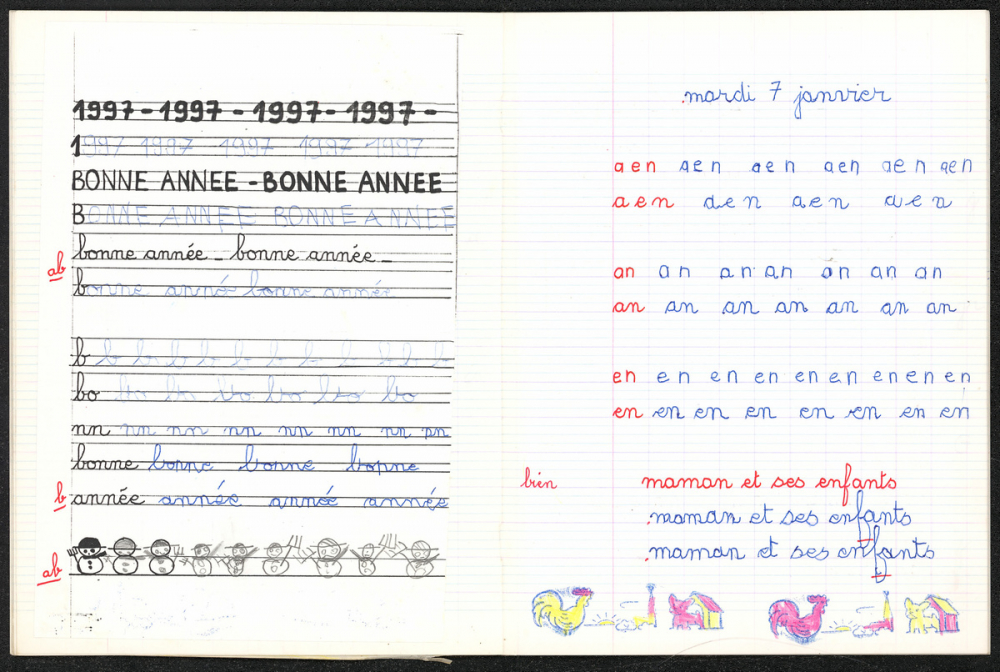 1997 - 1997 - 1997 - 1997 -
1997 1997 1997 1997 1997
BONNE ANNEE - BONNE ANNEE
BONNE ANNEE BONNE ANNEE
ab bonne année _ bonne année _
bonne année bonne année
b b b b b b b b b b
bo bo bo bo bo bo bo
nn nn nn nn nn nn nn nn
bonne bonne bonne bonne
b année année année année
ab
mardi 7 janvier
aen aen aen aen aen aen
aen aen aen aen
an an an an an an an
an an an an an an an
en en en en en en en en en
en en en en en en en en
bien maman et ses enfants
maman et ses enfants
maman et ses enfants